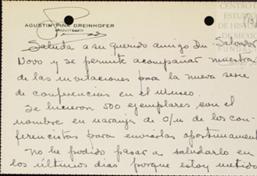 AGUSTIN PIÑA DREINHOFER
ARQUITECTO
Saluda a su querido amigo Dn. Salvador
Novo y se permite acompañar muestra
de las invitaciones para la nueva serie
de conferencias en el Museo.
Se hicieron 500 ejemplares con el
nombre en naranja de c/u de los con-
ferencistas para enviarlas oportunamente
No he podido pasar a saludarlo en
los últimos días porque estoy metido